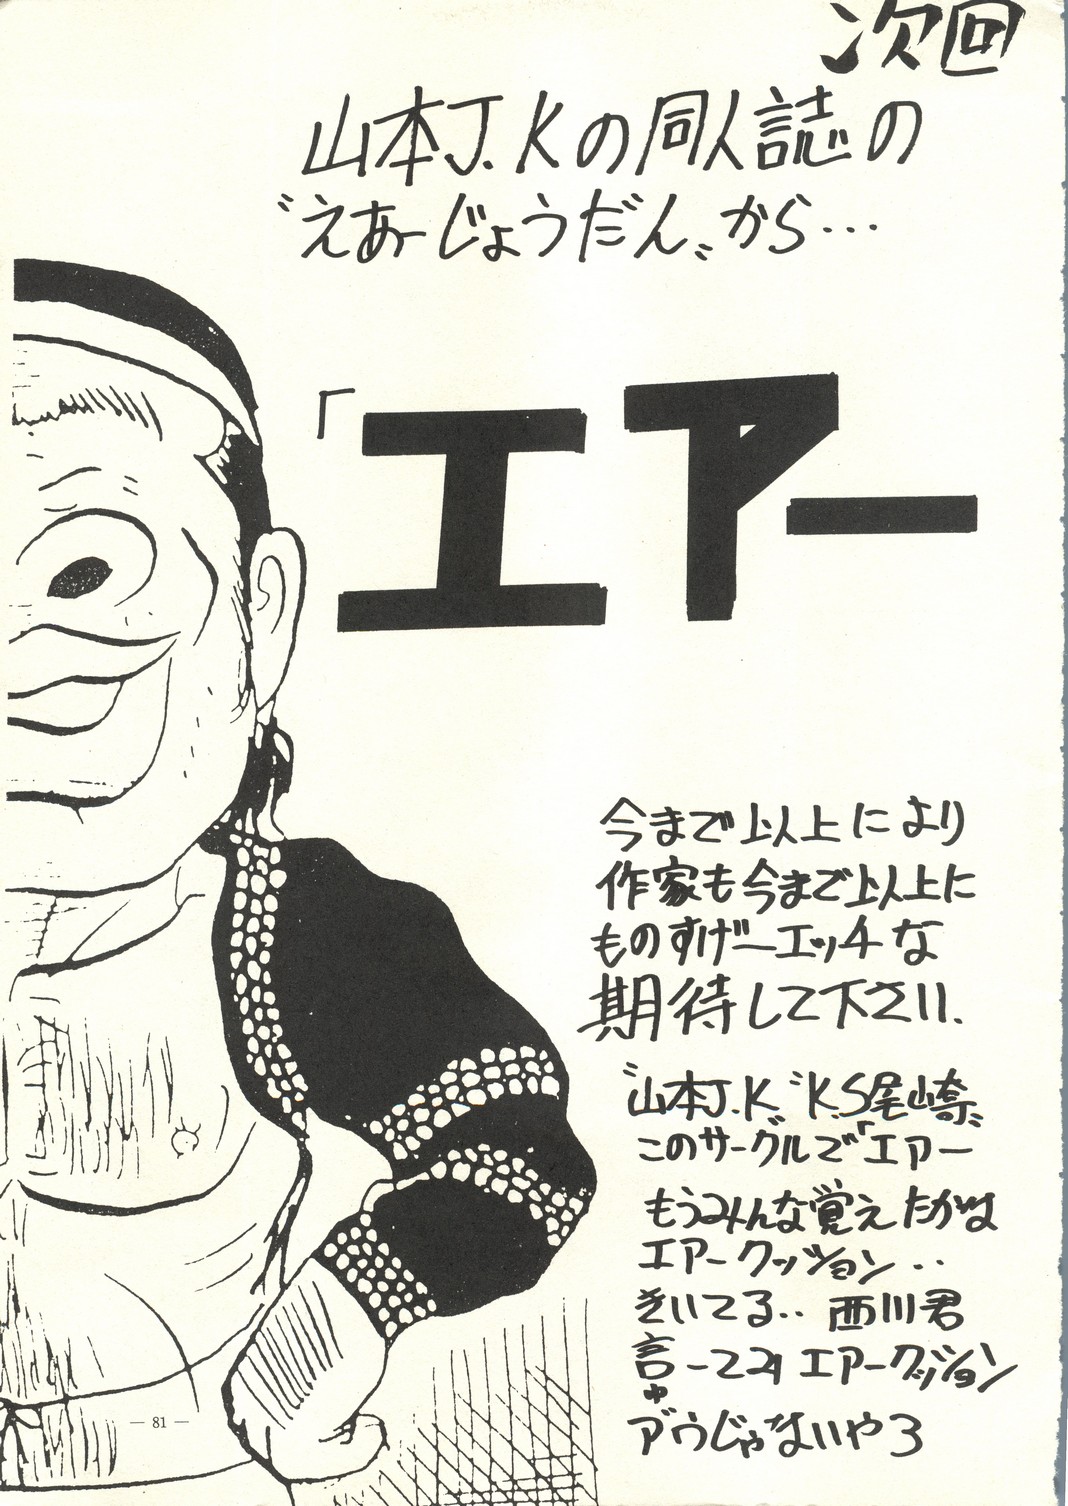 次回
山本J.Kの同人誌の
〝えあーじょうだん〟から…
「エアー
今まで以上により
作家も今まで以上に
ものすげーエッチな
期待して下さい.
〝山本J.K〟〝K.S尾崎〟
このサークルで「エアー
もうみんな覚えたかな
エアークッション‥
きいてる‥西川君
言ー エアークッション
じゃないや
— 81 —